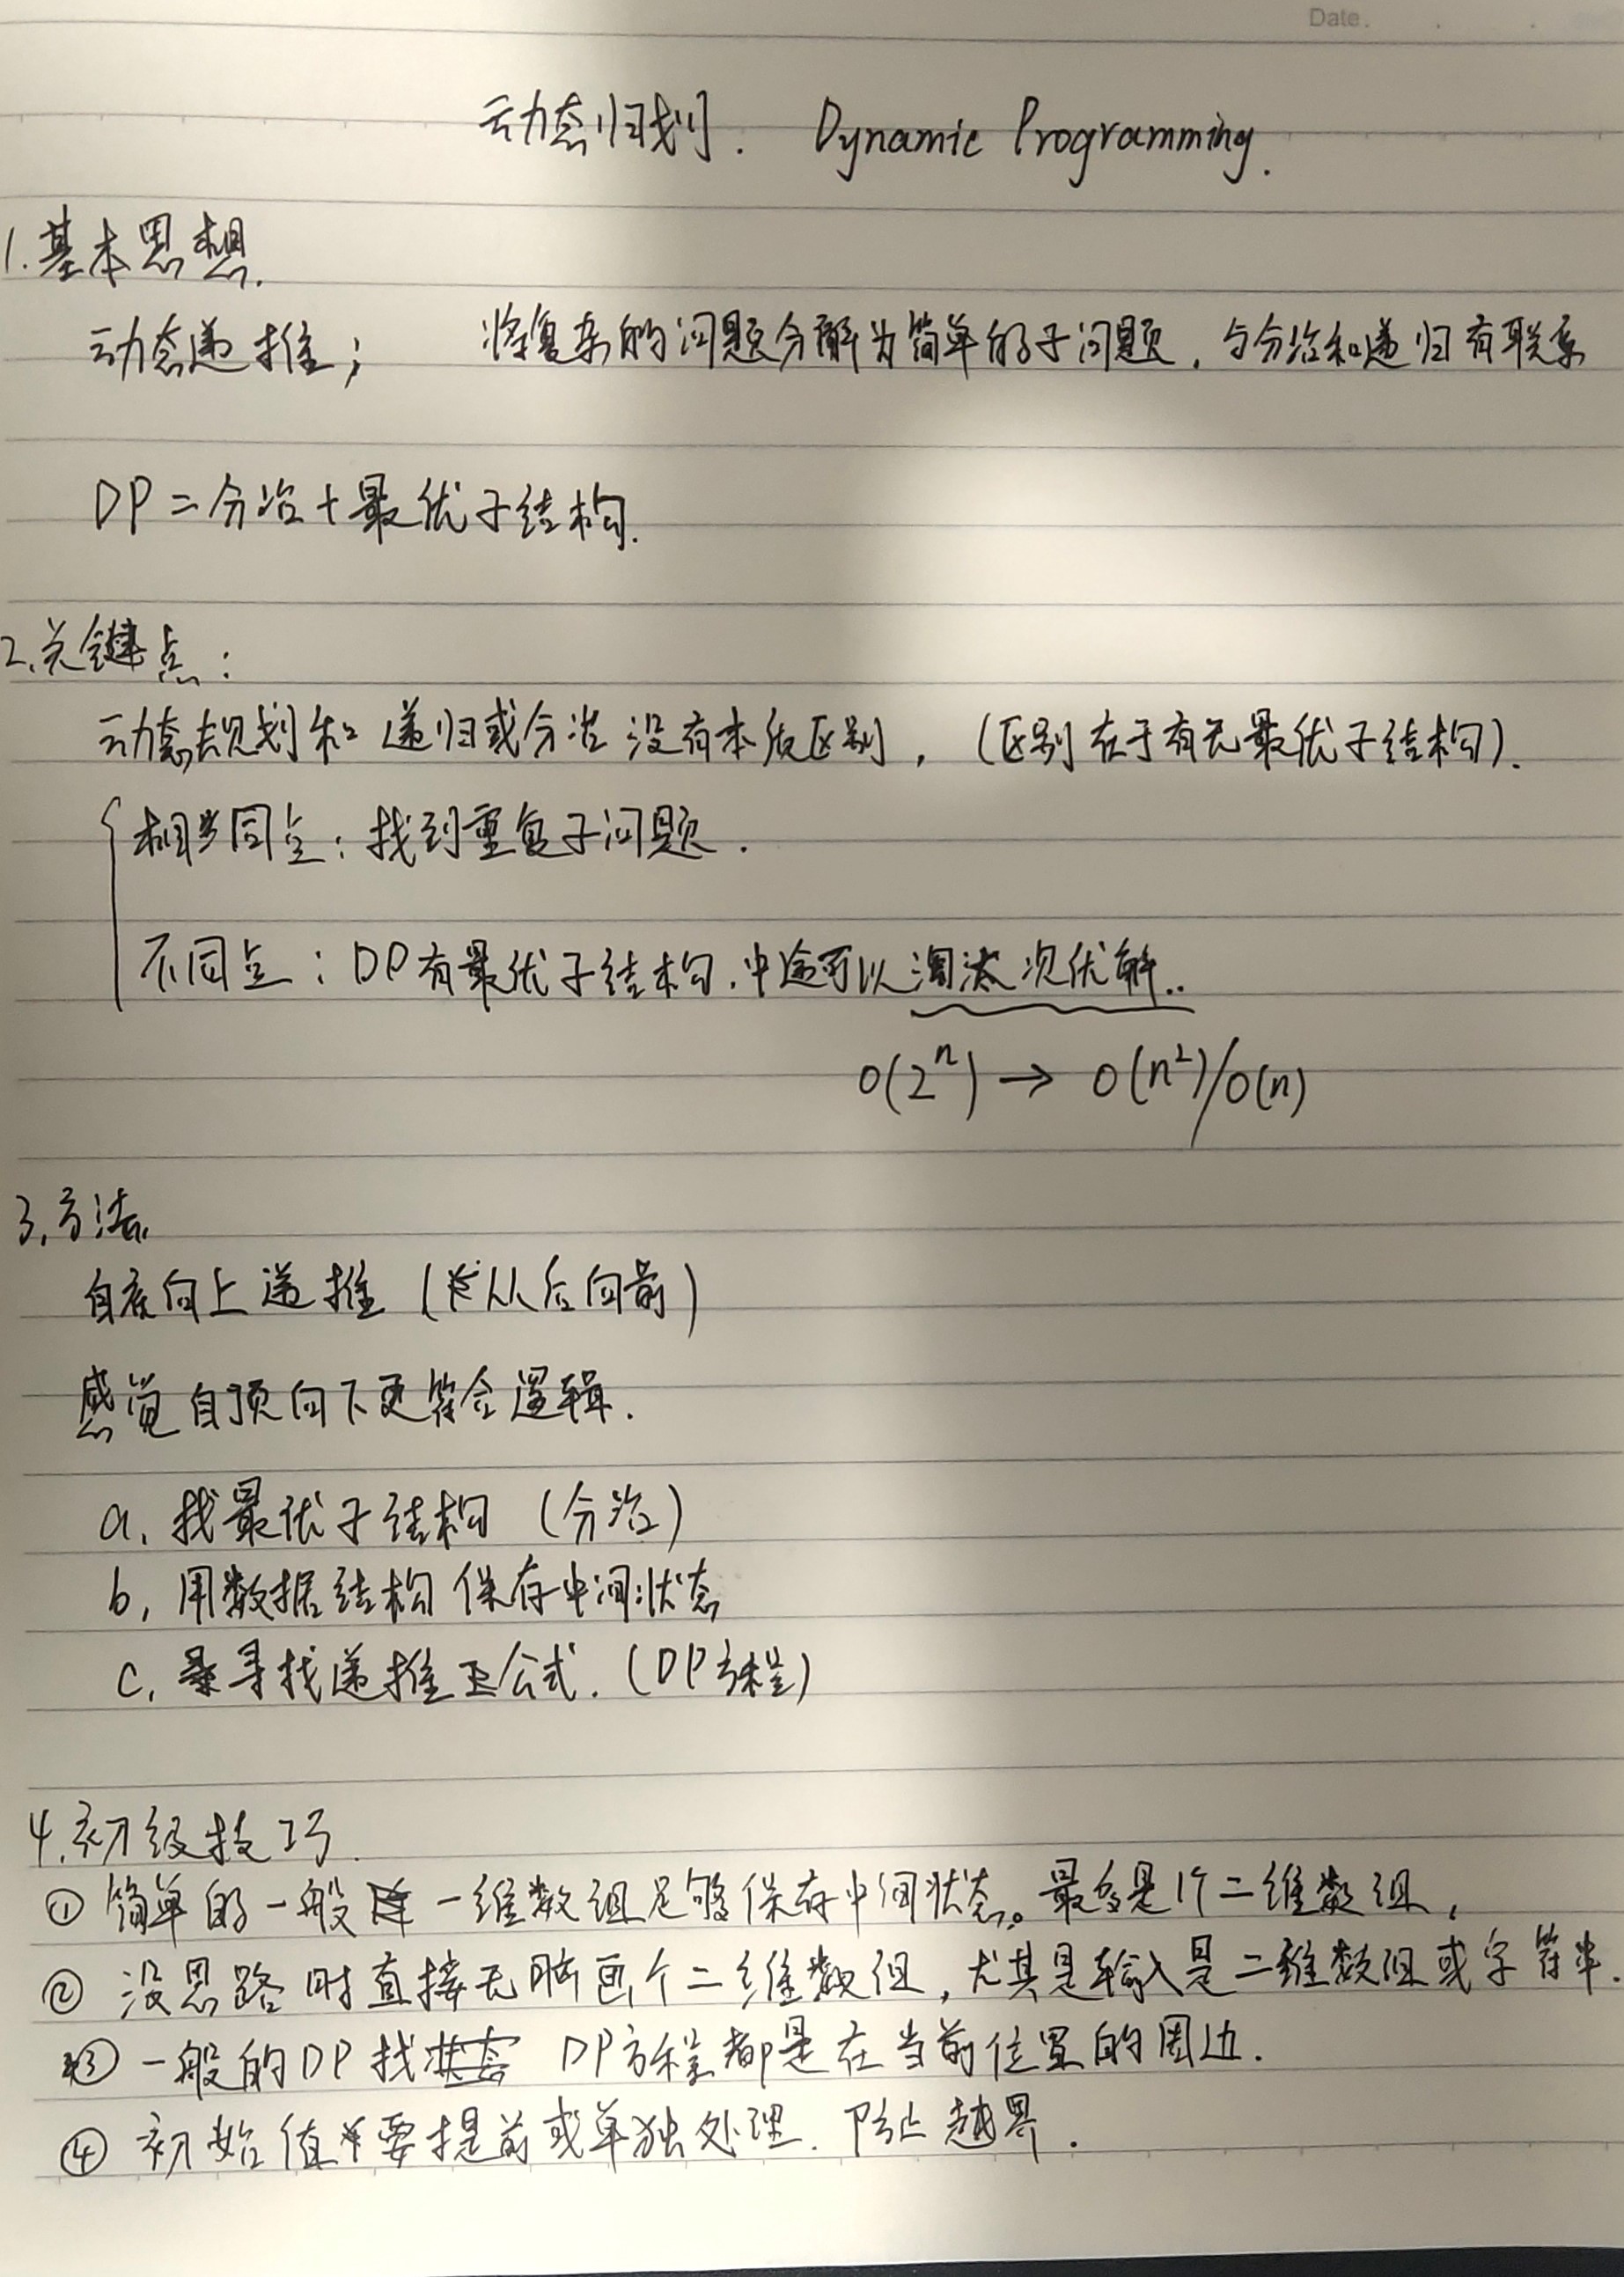 Date.
动态归划. Dynamic Programming.
1.基本思想.
动态递推; 将复杂的问题分解为简单的子问题,与分治和递归有联系
DP=分治+最优子结构.
2.关键点:
动态规划和递归或分治没有本质区别,(区别在于有无最优子结构).
相同点:找到重复子问题.
不同点:DP有最优子结构.中途可以淘汰次优解..
O(2^n)→O(n^2)/O(n)
3.方法
自底向上递推(从后向前)
感觉自顶向下更符合逻辑.
a.找最优子结构(分治)
b.用数据结构保存中间状态
c.寻找递推公式.(DP方程)
4.初级技巧.
①简单的一般一维数组足够保存中间状态。最多是1个二维数组,
②没思路时直接无脑画个二维数组,尤其是输入是二维数组或字符串.
③一般的DP找 DP方程都是在当前位置的周边.
④初始值要提前或单独处理.防止越界.